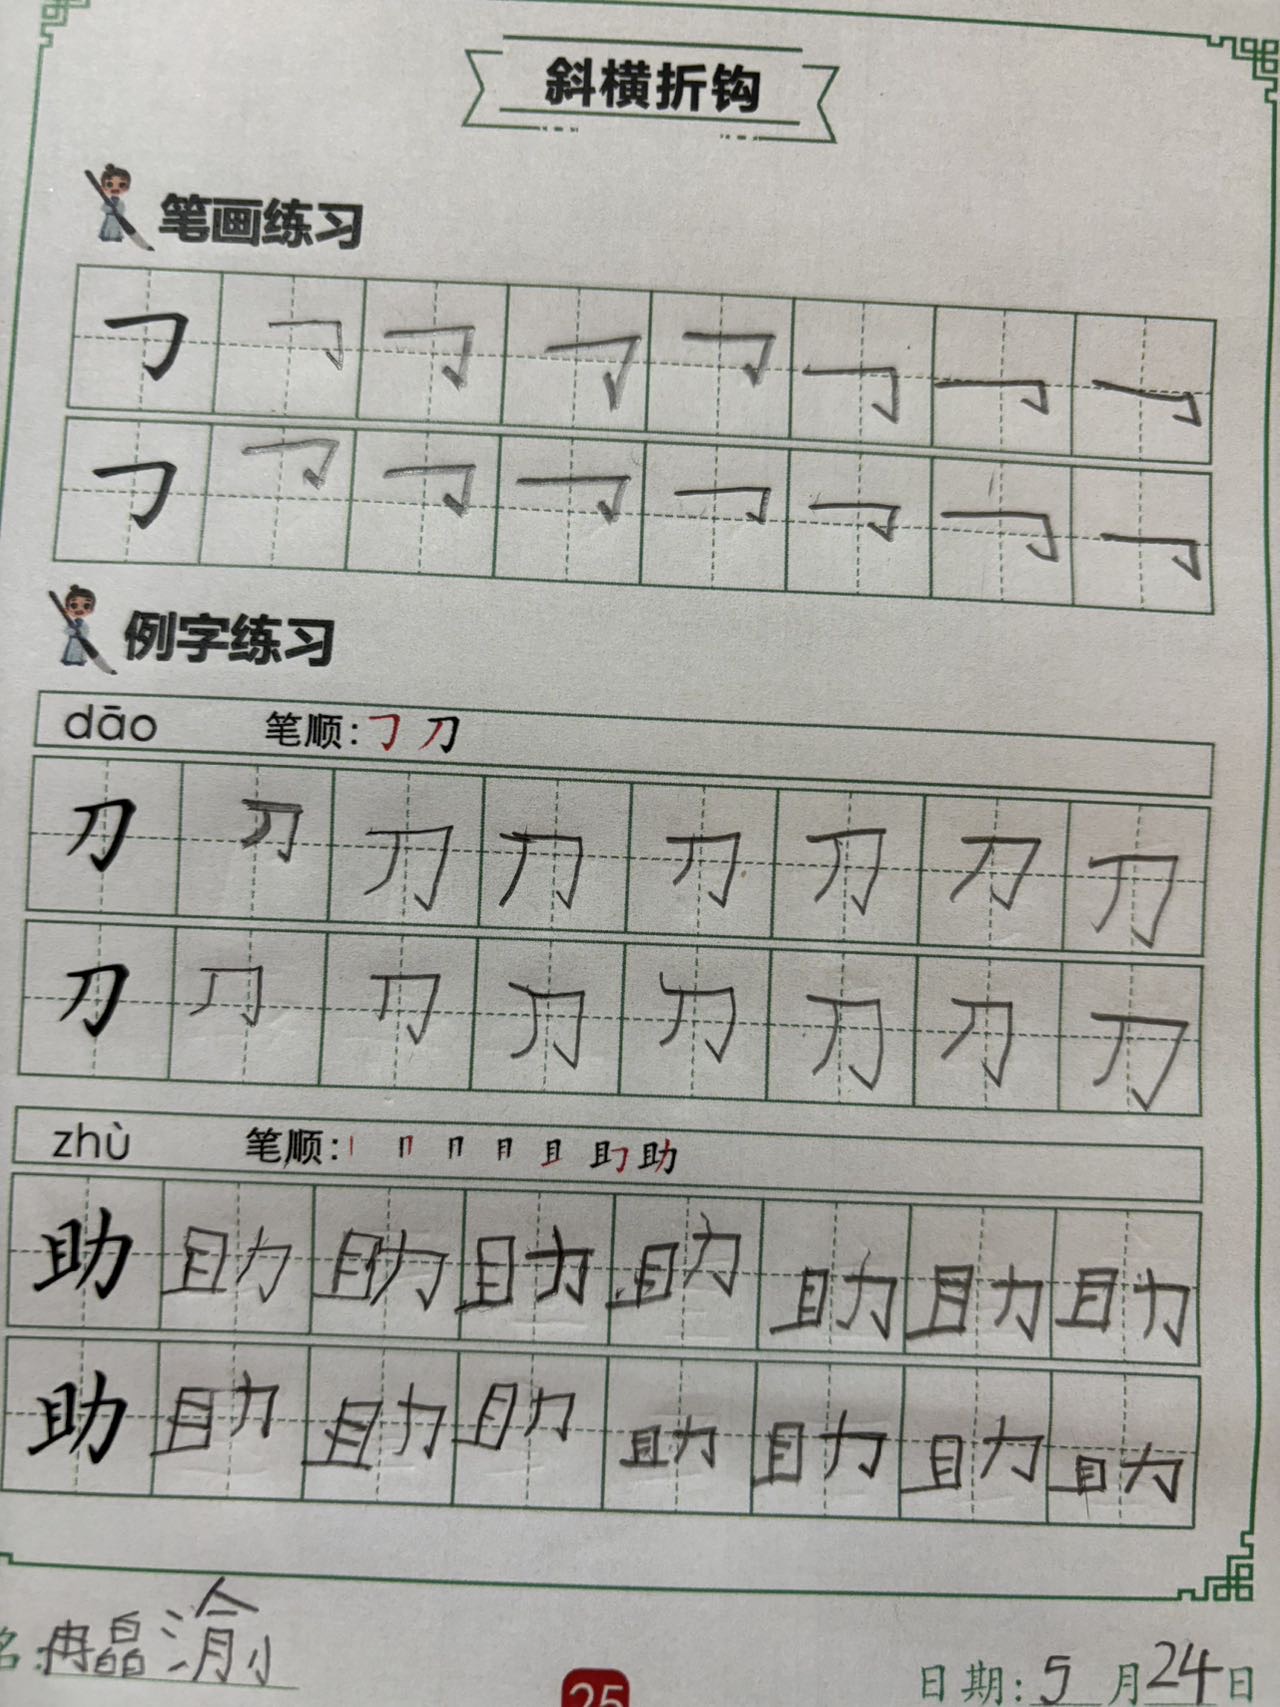 斜横折钩
笔画练习
㇆ ㇆ ㇆ ㇆ ㇆ ㇆ ㇆ ㇆
㇆ ㇆ ㇆ ㇆ ㇆ ㇆ ㇆ ㇆
例字练习
dāo 笔顺:㇆ 刀
刀 刀 刀 刀 刀 刀 刀 刀
刀 刀 刀 刀 刀 刀 刀 刀
zhù 笔顺:丨 冂 助
助 助 助 助 助 助 助 助
助 助 助 助 助 助 助 助
名:冉晶渝
25
日期:5月24日